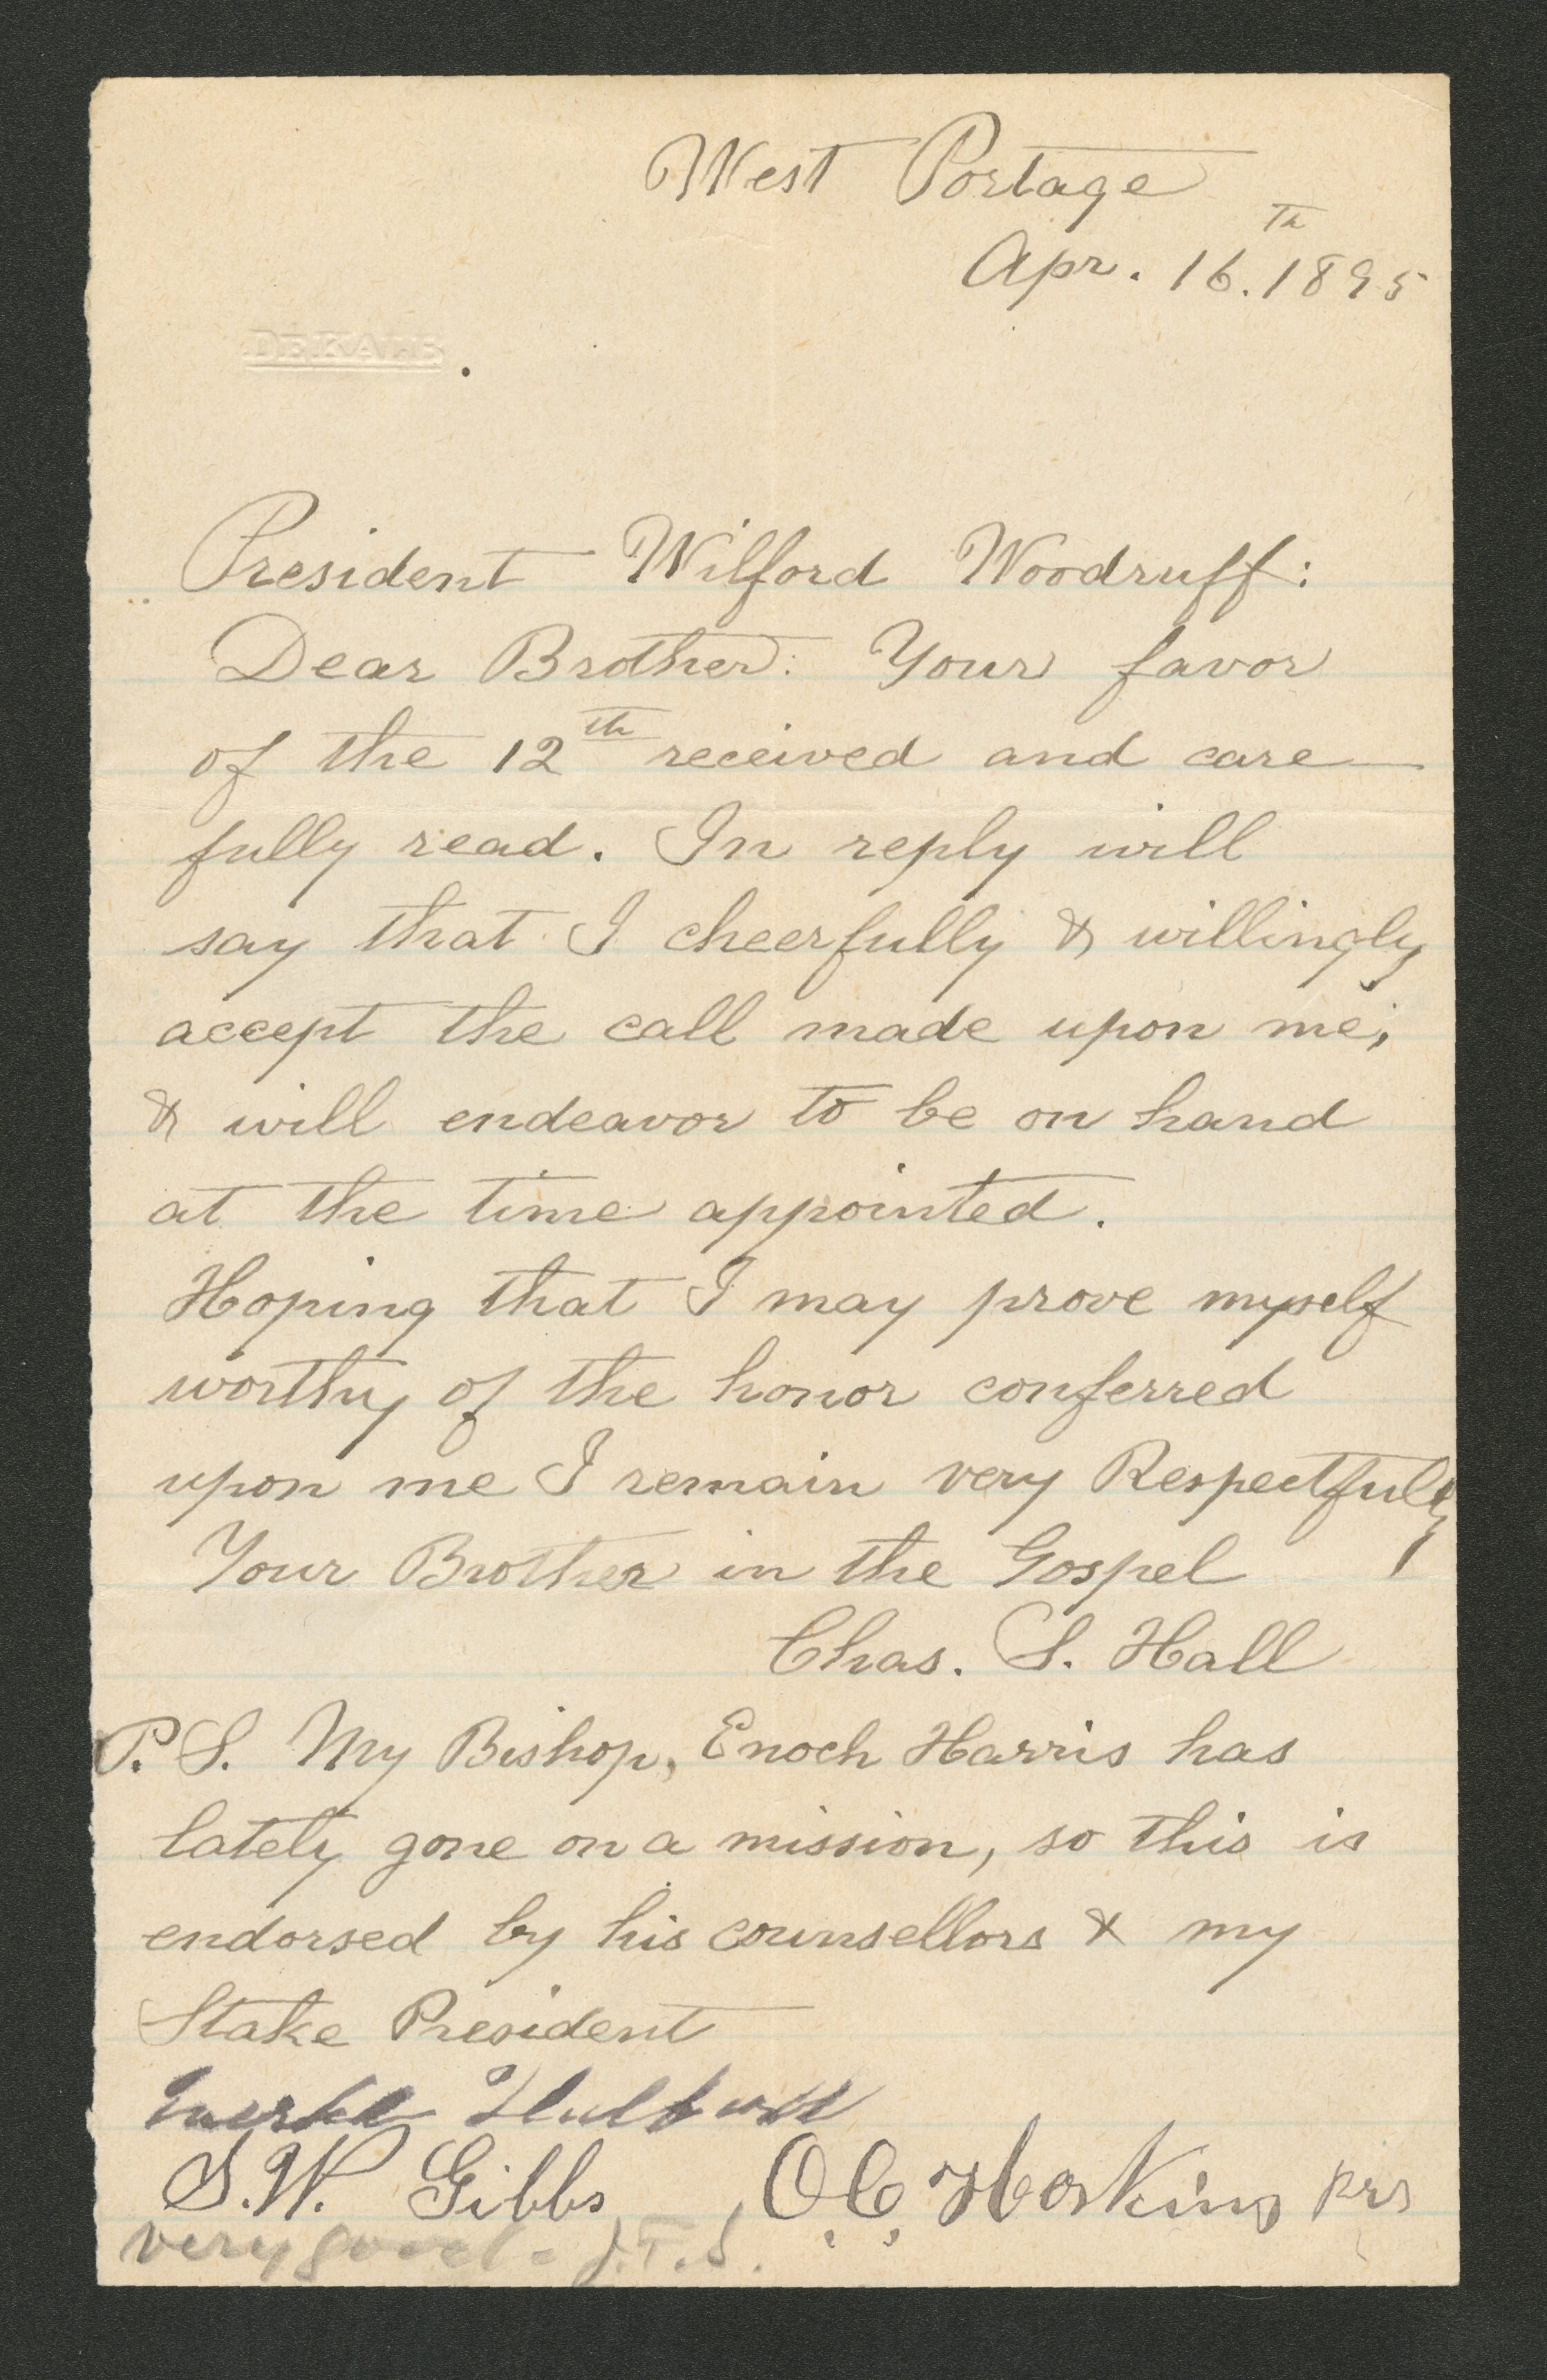 West Portage
Apr. 16.th 1895
DEKALB
President Wilford Woodruff:
Dear Brother: Your favor
of the 12th received and care
fully read. In reply will
say that I cheerfully & willingly
accept the call made upon me,
& will endeavor to be on hand
at the time appointed.
Hoping that I may prove myself
worthy of the honor conferred
upon me I remain very Respectfully
Your Brother in the Gospel
Chas. S. Hall
P.S. My Bishop, Enoch Harris has
lately gone on a mission, so this is
endorsed by his counsellors & my
Stake President
S.W. Gibbs O.C. Hoskins Prs
very good - J.F.S.